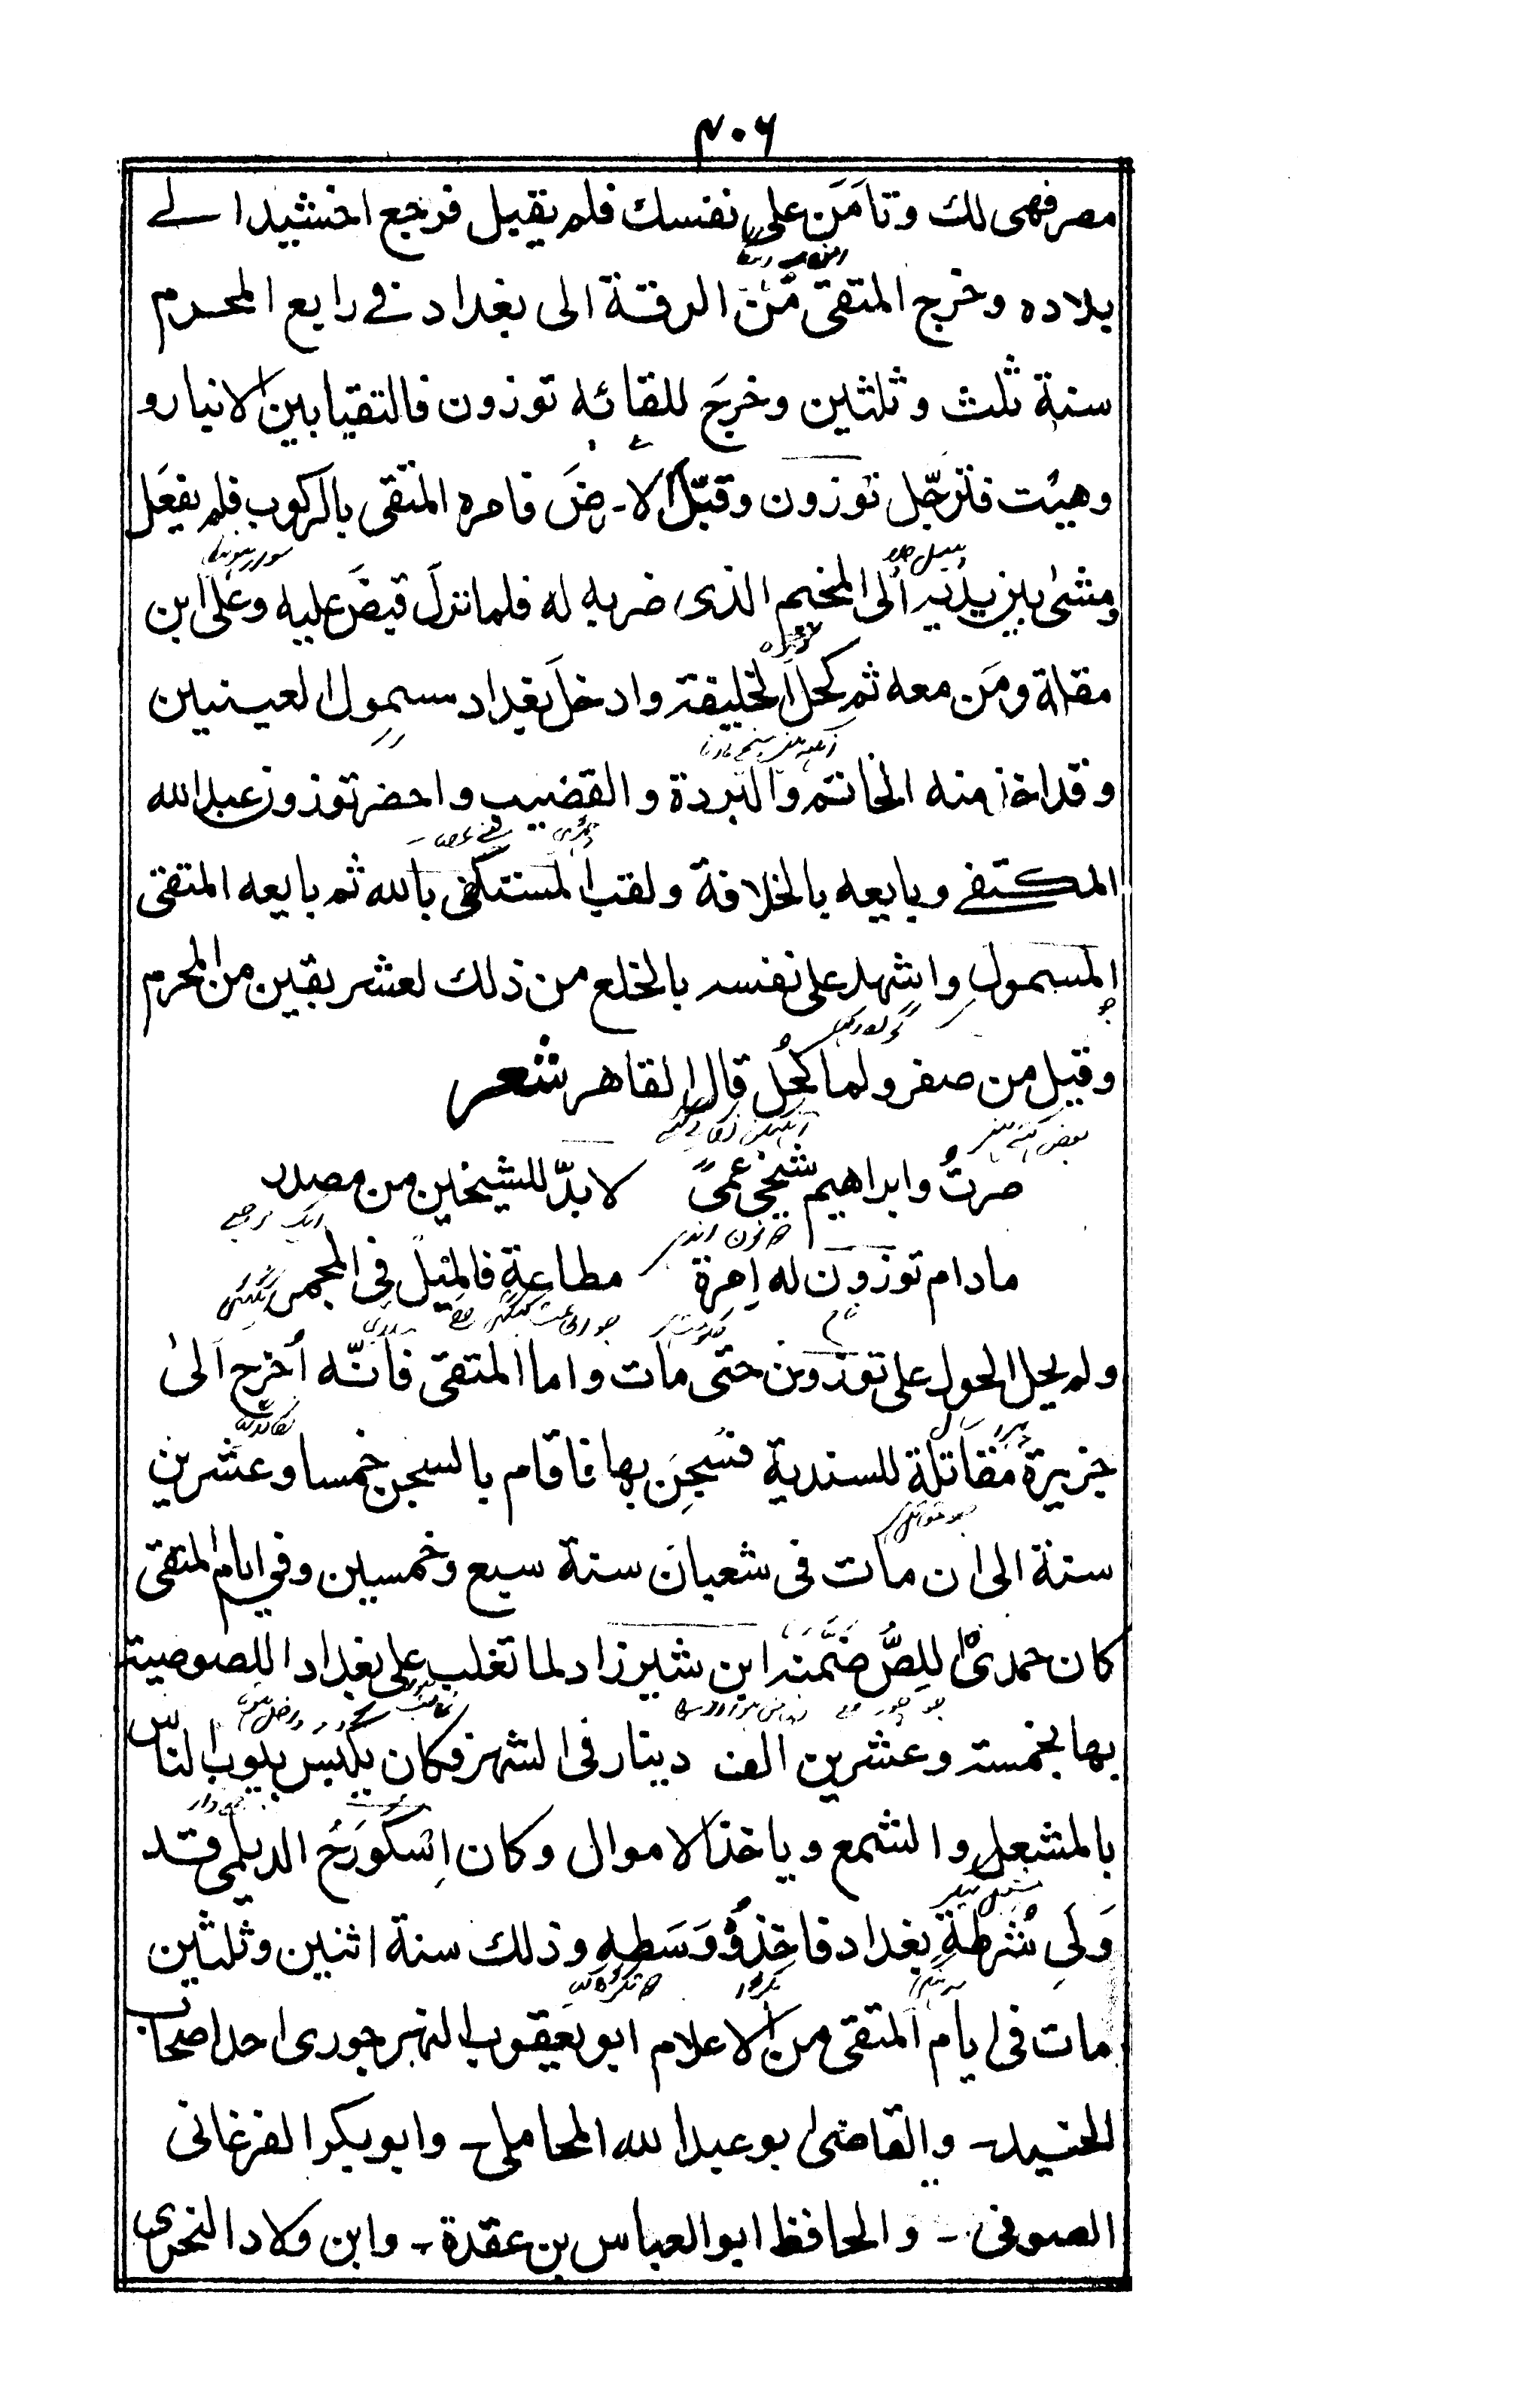 ۴۰۶
مصر فهى لك وتأمَنَ على نفسك فلم يقبل فرجع اخشيد الى
بلاده وخرج المتقى من الرقة الى بغداد فى رابع المحرم
سنة ثلث وثلثين وخرجَ للقائه توزون فالتقيا بين الانبار و
وهيت فترجّل توزون وقبّل الارضَ فامره المتقى بالركوب فلم يفعَل
ومشى بين يديه الى المخيم الذى ضربه له فلما نزلَ قبضَ عليه وعلى ابن
مقلة ومَن معه ثم كحل الخليفة وادخلَ بغداد مسمول العينين
وقد اخذ منه الخاتم والبردة والقضيب واحضر توزون عبد الله
المكتفى وبايعه بالخلافة ولقب المستكفى بالله ثم بايعه المتقى
المسمول واشهد على نفسه بالخلع من ذلك لعشر بقين من المحرم
وقيل من صفر ولما كُحل قال القاهر شعر
صرتُ وابراهيم شيخى عمىً لا بدّ للشيخين من مصدر
مادام توزون له اِمرة مطاعة فالمِيل فى المجمر
ولم يحل الحول على توزون حتى مات واما المتقى فانّه أُخرج الى
جزيرة مقاتلة للسندية فسُجِنَ بها فاقام بالسجن خمسا وعشرين
سنة الى ان مات فى شعبان سنة سبع وخمسين وفى ايام المتقى
كان حمدى اللِصُّ ضَمَّنه ابن شيرزاد لما تغلب على بغداد اللصوصية
بها بخمسة وعشرين الف دينار فى الشهر فكان يكبس بيوب الناس
بالمشعل والشمع وياخذ الاموال وكان اِسكورَج الديلمى قد
وَلَى شُرطة بغداد فاخذه ووَسَطه وذلك سنة اثنين وثلثين
مات فى ايام المتقى من الاعلام ابو يعقوب النهرجورى احد اصحاب
الجنيد - والقاضى ابو عبد الله المحاملى - وابو بكر الفرغانى
الصوفى - والحافظ ابو العباس بن عقدة - وابن ولاد النحوى